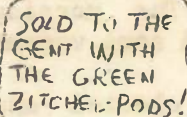 SOLD TO THE
GENT WITH
THE GREEN
ZITCHEL-PODS!